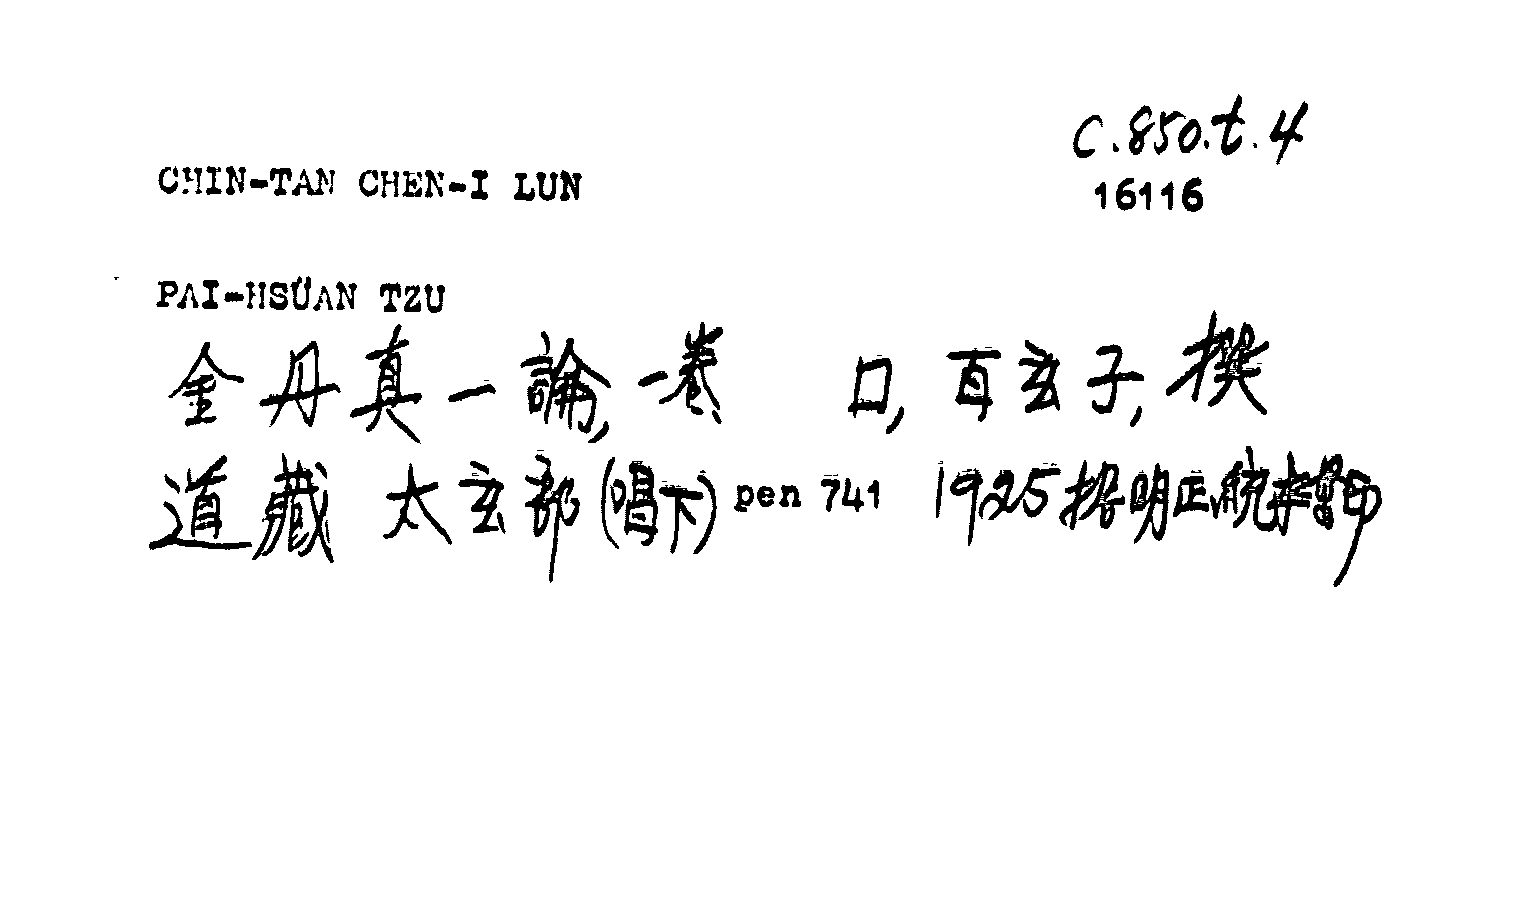 C.850.t.4
CHIN-TAN CHEN-I LUN
16116
PAI-HSÜAN TZU
金丹真一論,一卷 口,百玄子,撰
道藏 太玄部(唱下) pen 741 1925 据明正統本影印